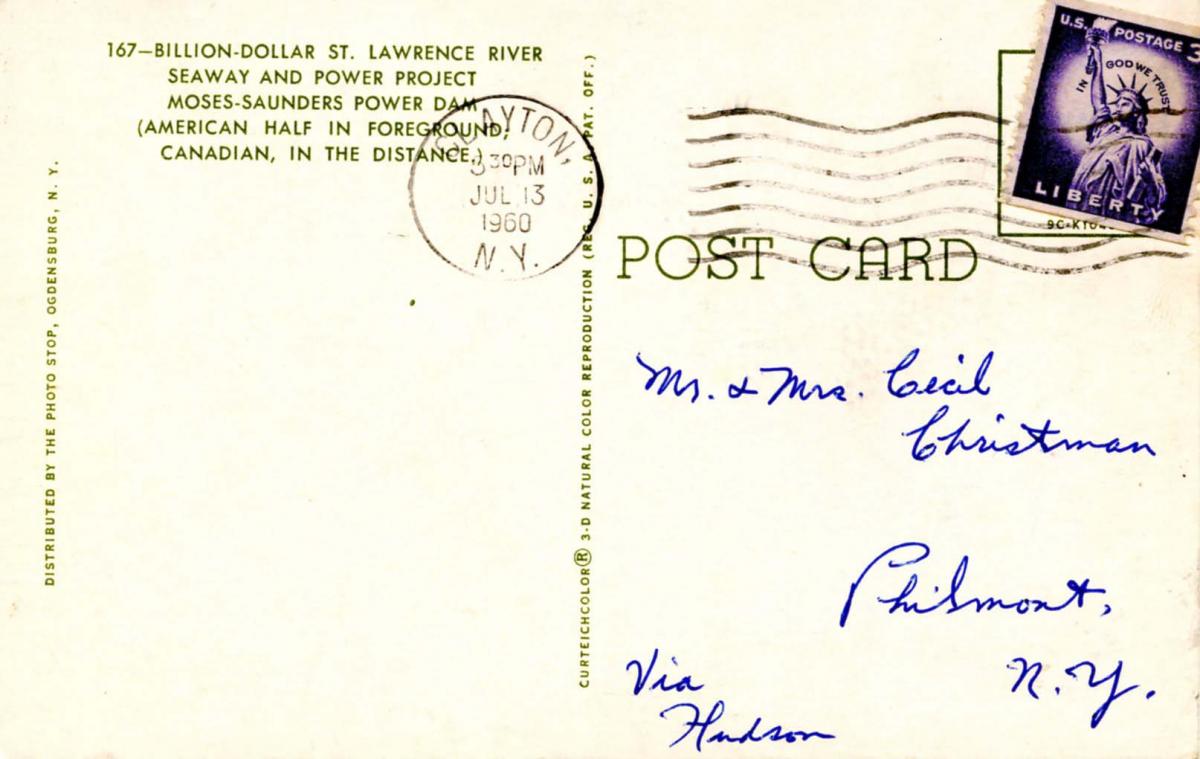 167—BILLION-DOLLAR ST. LAWRENCE RIVER
SEAWAY AND POWER PROJECT
MOSES-SAUNDERS POWER DAM
(AMERICAN HALF IN FOREGROUND,
CANADIAN, IN THE DISTANCE.)
DISTRIBUTED BY THE PHOTO STOP, OGDENSBURG, N. Y.
CLAYTON,
3 30PM
JUL 13
1960
N.Y.
CURTEICHCOLOR® 3-D NATURAL COLOR REPRODUCTION (REG. U. S. A. PAT. OFF.)
POST CARD
U.S. POSTAGE 3
IN GOD WE TRUST
LIBERTY
Mr. & Mrs. Cecil
Christman
Philmont,
N.Y.
Via
Hudson